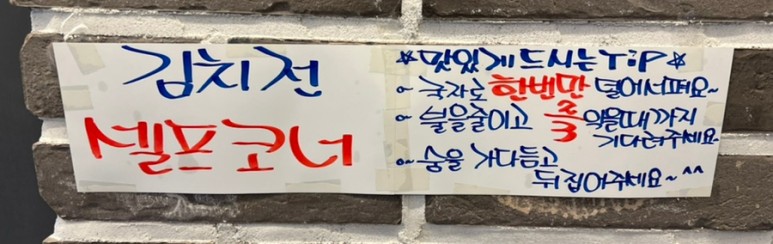 김치전
셀프코너
☆맛있게드시는TiP☆
국자로 한번만 덜어서펴요~
불을줄이고 2/3 익을때까지
기다려주세요~
숨을 가다듬고
뒤집어주세요~^^